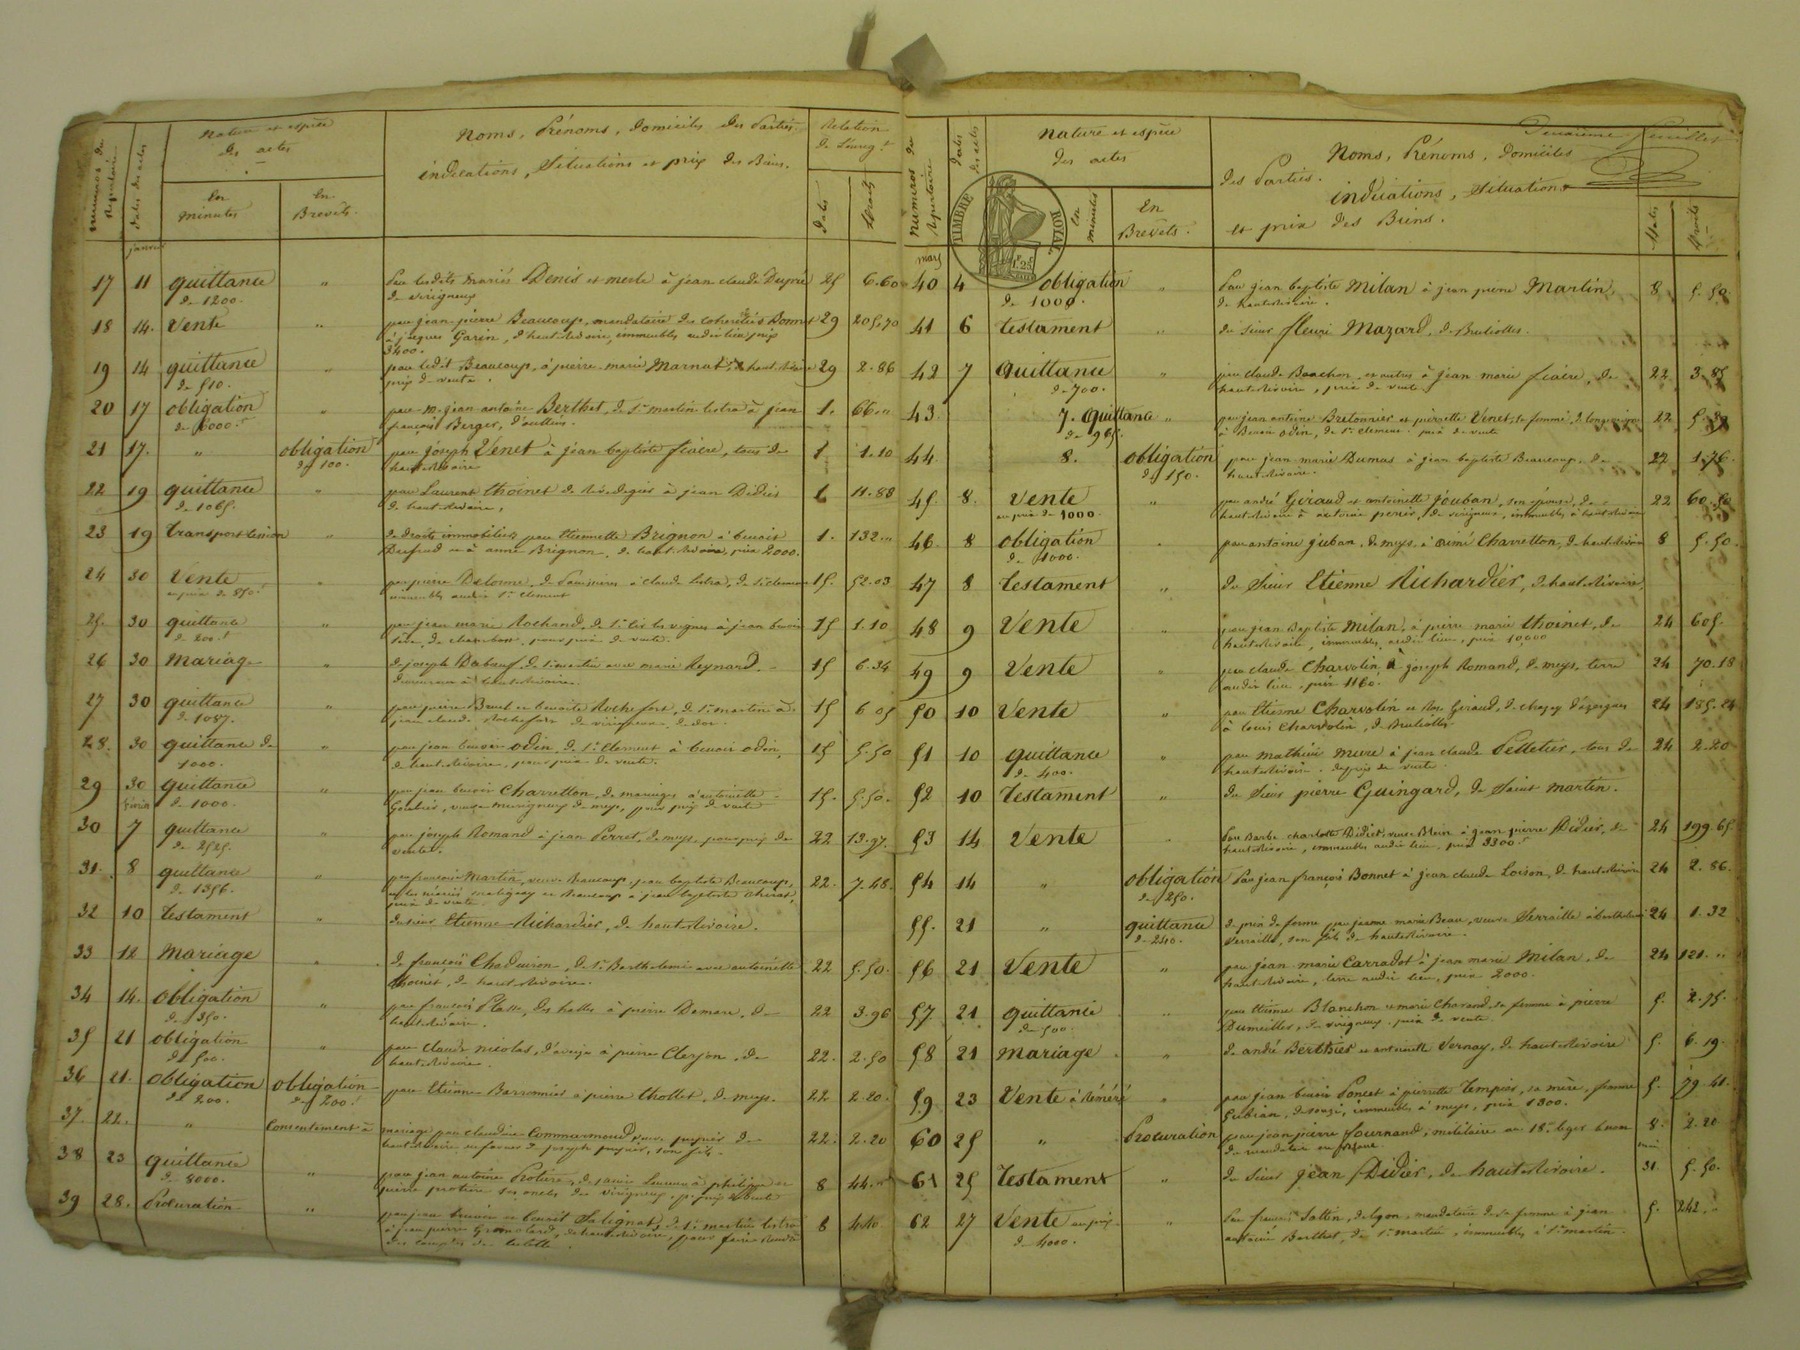 numéros du Répertoire
dates des actes
Nature et espèce des actes
En minutes
En Brevets.
Noms, Prénoms, domiciles des Parties
indications, Situations et prix des Biens.
Relation de l'enreg.t
dates
droits
janvier
17 11 quittance de 1200. " Par lesdits mariés Denis et merle à jean claude Dupré 25 6.60
de virigneux
18 14. Vente " par jean pierre Beaucoup, mandataire des cohéritiés Bonnet 29 205.70
à jacques Garin, d'hauteRivoire, immeubles audit lieu prix
3400.
19 14 quittance de 510. " par ledit Beaucoup, à pierre marie Marnat, de hauteRivoire 29 2.86
prix de vente.
20 17 obligation de 6000. " par m. jean antoine Berthet, de St martin lestra à jean 1. 66 "
françois Berger, d'oullins.
21 17. " obligation de 100. par joseph Venet à jean baptiste fiaère, tous de 1 1.10
hauteRivoire
22 19 quittance de 1065. " par Laurent thoinet de Rivedegier à jean Didier 1 11.88
d'hauteRivoire,
23 19 transport cession " de droits immobiliers par ettiennette Brignon à benoit 1. 132 "
et à anne Brignon, d'hauteRivoire, prix 2000.
24 30 Vente au prix de 850. " par pierre Delorme, de à claude Lestra, de St clement 15. 52.03
immeubles audit St clement
25. 30 quittance de 200. " par jean marie Rochand, de St les vignes à jean benoit 15 1.10
de pour prix de vente.
26 30 Mariage " de joseph Dubœuf, de St martin avec marie Reynard 15 6.34
demeurant à hauteRivoire.
27 30 quittance de 1087. " par pierre et benoite Rochefort, de St martin à 15 6 05
jean claude Rochefort de virigneux, de dot.
28. 30 quittance de 1000. " par jean benoit odin, de St clement à benoit odin, 15 5.50
de hauteRivoire, pour prix de vente.
29 30 quittance de 1000. " par jean benoit Charretton, de à antoinette 15. 5.50.
veuve de meys, pour prix de vente
février
30 7 quittance de 2525. " par joseph Romand à jean Perret, de meys, pour prix de 22 13.97.
vente.
31. 8 quittance de 1356. " par françoise Martin, veuve Beaucoup, jean baptiste Beaucoup, 22. 7.48.
et Beaucoup à jean baptiste
prix de vente.
32 10 testament " du sieur Etienne Richardier, de hauteRivoire.
33 12 Mariage " de françois Chaduiron, de St Barthelemi avec antoinette 22 5.50.
thoinet, de hauteRivoire.
34 14. Obligation de 350. " par françois Plasse, des halles à pierre Demare, de 22 3.96
hauteRivoire.
35 21 obligation de 500. " par claude nicolas, d'aveize à pierre Clerjon, de 22. 2.50
hauteRivoire.
36 21. Obligation de 200. obligation de 200. par Etienne Barronnier à pierre thollet, de meys. 22 2.20.
37. 22. " Consentement à mariage par claudine Commarmond veuve de 22. 2.20
hauteRivoire en faveur de joseph son fils.
38 23 quittance de 8000. " par jean antoine Protière, de à philippe et 8 44.
pierre protière ses oncles de virigneux, pr prix de vente
39 28. Procuration " par jean benoit et benoit Salignat, de St martin lestra 8 4.40
à jean pierre de hauteRivoire, pour faire rendre
des comptes de tutelle.
Deuxieme feuillet
Numéros du Répertoire
dates des actes
Nature et espèce des actes
En minutes
En Brevets.
Noms, Prénoms, domiciles
des Parties.
indications, Situations
et prix des Biens.
dates
droits
TIMBRE ROYAL
1.25
mars
40 4 obligation de 1000. " Par jean baptiste Milan à jean pierre Martin, 8 5.50.
de hauteRivoire.
41 6 testament " du sieur fleuri Mazard, de Brullioles.
42 7 Quittance de 700. " par claude Boachon, et autres à jean marie fiaère, de 22 3.85
hauteRivoire, prix de vente
43. 7. Quittance de 965. " par jean antoine Bretonnier et pierrette Venet, sa femme, de longessaigne 22 5.39
à Benoit odin, de St clement, prix de vente
44. 8. obligation de 150. par jean marie Dumas à jean baptiste Beaucoup, de 22 1.76.
hauteRivoire.
45. 8. Vente au prix de 1000. " par andré Giraud et antoinette jouban, son épouse, de 22 60.50
hauteRivoire à antoine de virigneux, immeubles à hauteRivoire
46. 8 obligation de 1000. " par antoine juban, de meys, à aimé Charretton, de hauteRivoire 8 5.50.
47 8 testament " du Sieur Etienne Richardier, de hauteRivoire,
48 9 Vente " par jean Baptiste Milan, à pierre marie thoinet, de 24 605.
hauteRivoire, immeubles audit lieu, prix 10,000
49 9 Vente " par claude Charvolin, à joseph Romand, de meys, terre 24 70.18
audit lieu, prix 1160.
50 10 Vente " par ettienne Charvolin et Rose Giraud, de 24 185.24
à louis Charvolin, de Brullioles
51 10 quittance de 400. " par mathieu à jean claude Pelletier, tous de 24 2.20
hauteRivoire, de prix de vente.
52 10 Testament " du Sieur pierre Guingard, de Saint martin.
53 14 Vente " Par Barbe charlotte Didier, veuve Blein à jean pierre Didier, de 24 199.65
hauteRivoire, immeubles audit lieu, prix 3300.
54 14 " obligation de 250. Par jean françois Bonnet à jean claude Loison, de hauteRivoire 24 2.86.
55. 21 " quittance de 240. de prix de ferme par jeanne marie Beau, veuve Serraille à barthelemi 24 1.32
Serraille, son fils de hauteRivoire.
56 21 Vente " par jean marie Carradot à jean marie Milan, de 24 121. "
hauteRivoire, terre audit lieu, prix 2000.
57 21 quittance de 500. " par ettienne Blanchon et marie Chavand sa femme à pierre 5. 2.75.
Dumeilles, de virigneux, prix de vente.
58 21 mariage " de andré Berthier et antoinette Vernay, de hauteRivoire 5. 6.19.
59 23 Vente à Réméré " par jean benoit Poncet à pierrette tempier, sa mère, femme 5. 79.41.
de immeubles à meys, prix 1300.
60 25 " Procuration par jean pierre fournand, militaire au 18e léger 8. 2.20
de mandataire en blanc
mai
61 25 Testament " du Sieur jean Didier, de hauteRivoire. 31 5.50.
62 27 Vente au prix de 4000. " Par françois Sottin, de lyon, mandataire de sa femme à jean 5. 242. "
antoine Berthet, de St martin, immeubles à St martin.